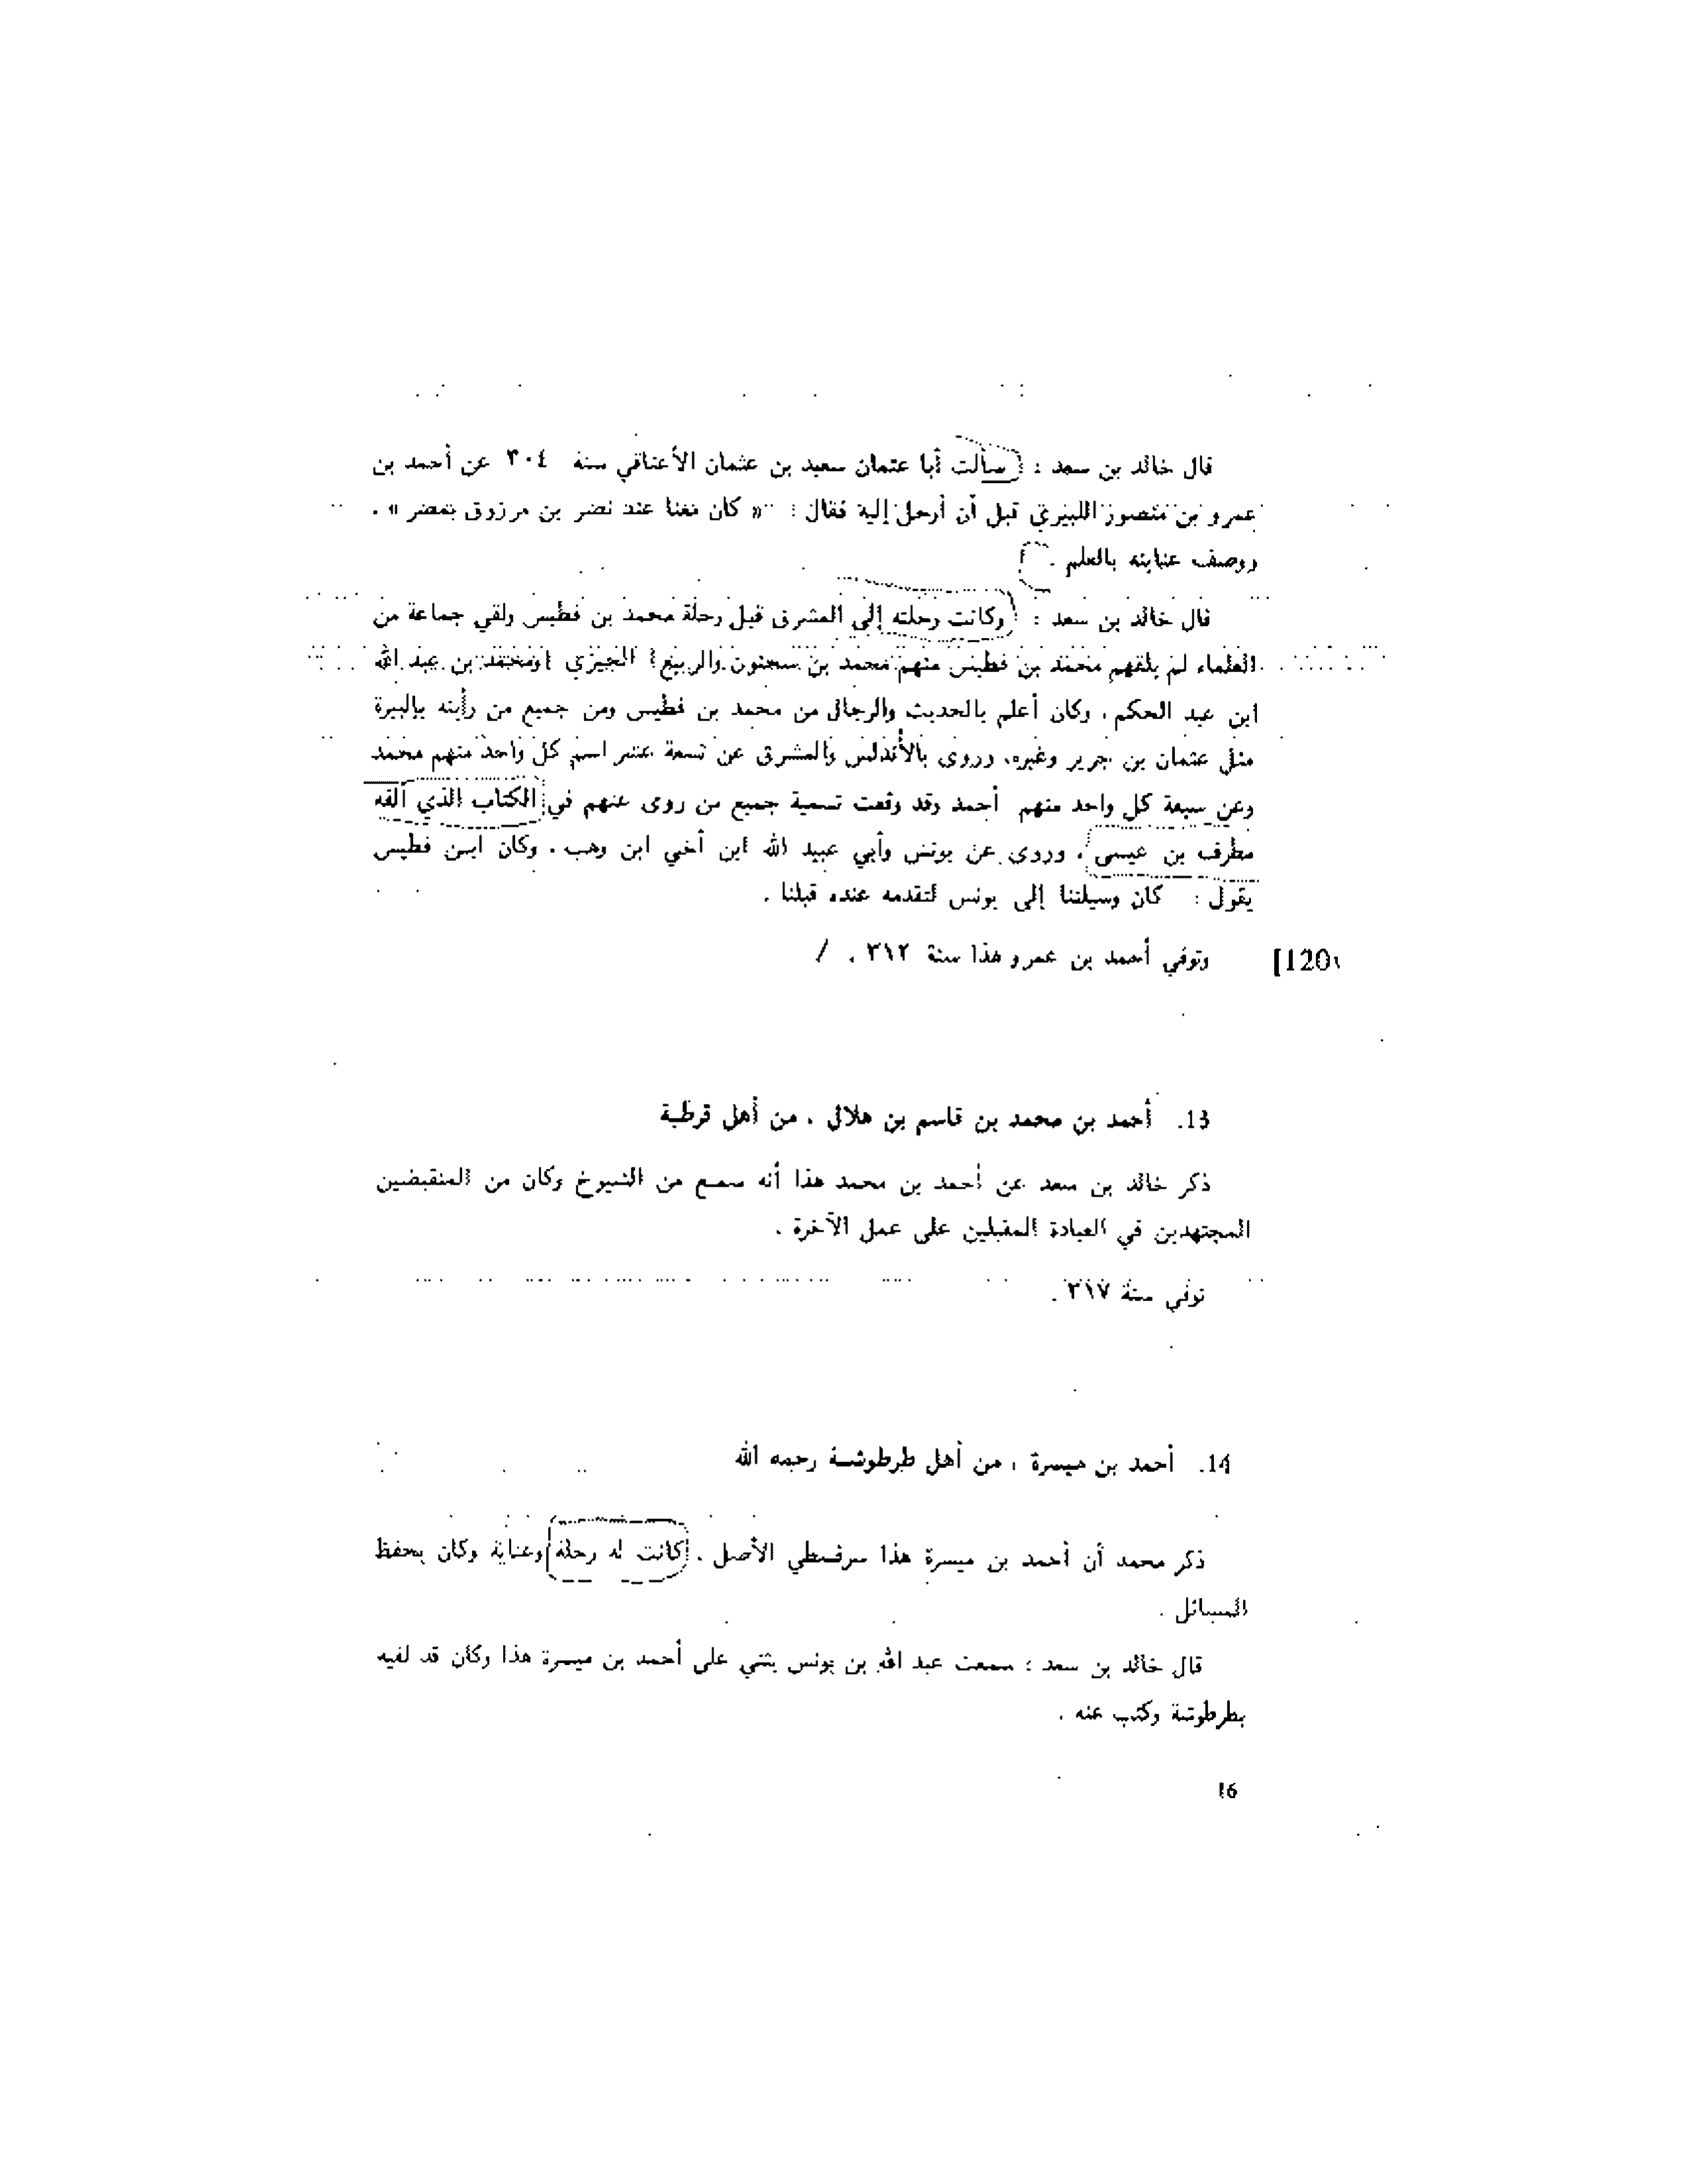 قال خالد بن سعد : سألت أبا عثمان سعيد بن عثمان الأعناقي سنة ٣٠٤ عن أحمد بن
عمرو بن منصور اللبيري قبل أن أرحل إليه فقال : « كان معنا عند نصر بن مرزوق بمصر » .
ووصف عنايته بالعلم .
قال خالد بن سعد : وكانت رحلته إلى المشرق قبل رحلة محمد بن فطيس ولقي جماعة من
العلماء لم يلقهم محمد بن فطيس منهم محمد بن سحنون والربيع الجيزي ومحمد بن عبد الله
ابن عبد الحكم ، وكان أعلم بالحديث والرجال من محمد بن فطيس ومن جميع من رأيته بإلبيرة
مثل عثمان بن جرير وغيره، وروى بالأندلس والمشرق عن تسعة عشر اسم كل واحد منهم محمد
وعن سبعة كل واحد منهم أحمد وقد وقعت تسمية جميع من روى عنهم في الكتاب الذي ألفه
مطرف بن عيسى ، وروى عن يونس وأبي عبيد الله ابن أخي ابن وهب . وكان ابن فطيس
يقول : كان وسيلتنا إلى يونس لتقدمه عنده قبلنا .
وتوفي أحمد بن عمرو هذا سنة ٣١٢ . /
[120
13. أحمد بن محمد بن قاسم بن هلال ، من أهل قرطبة
ذكر خالد بن سعد عن أحمد بن محمد هذا أنه سمع من الشيوخ وكان من المنقبضين
المجتهدين في العبادة المقبلين على عمل الآخرة .
توفي سنة ٣١٧ .
14. أحمد بن ميسرة ، من أهل طرطوشة رحمه الله
ذكر محمد أن أحمد بن ميسرة هذا سرقسطي الأصل . كانت له رحلة وعناية وكان يحفظ
المسائل .
قال خالد بن سعد : سمعت عبد الله بن يونس يثني على أحمد بن ميسرة هذا وكان قد لقيه
بطرطوشة وكتب عنه .
16